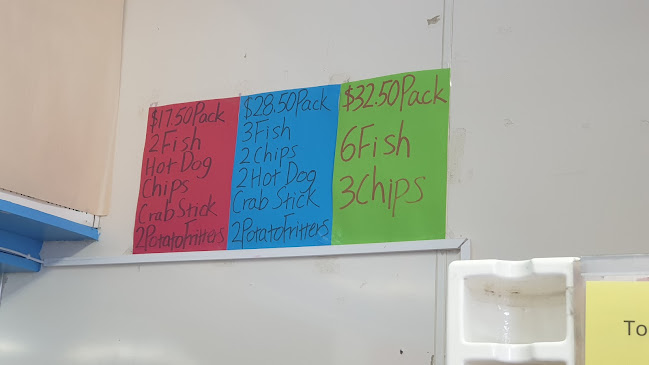 $17.50Pack
2Fish
Hot Dog
Chips
Crab Stick
2PotatoFritters
$28.50Pack
3Fish
2Chips
2Hot Dog
Crab Stick
2PotatoFritters
$32.50Pack
6Fish
3Chips
To